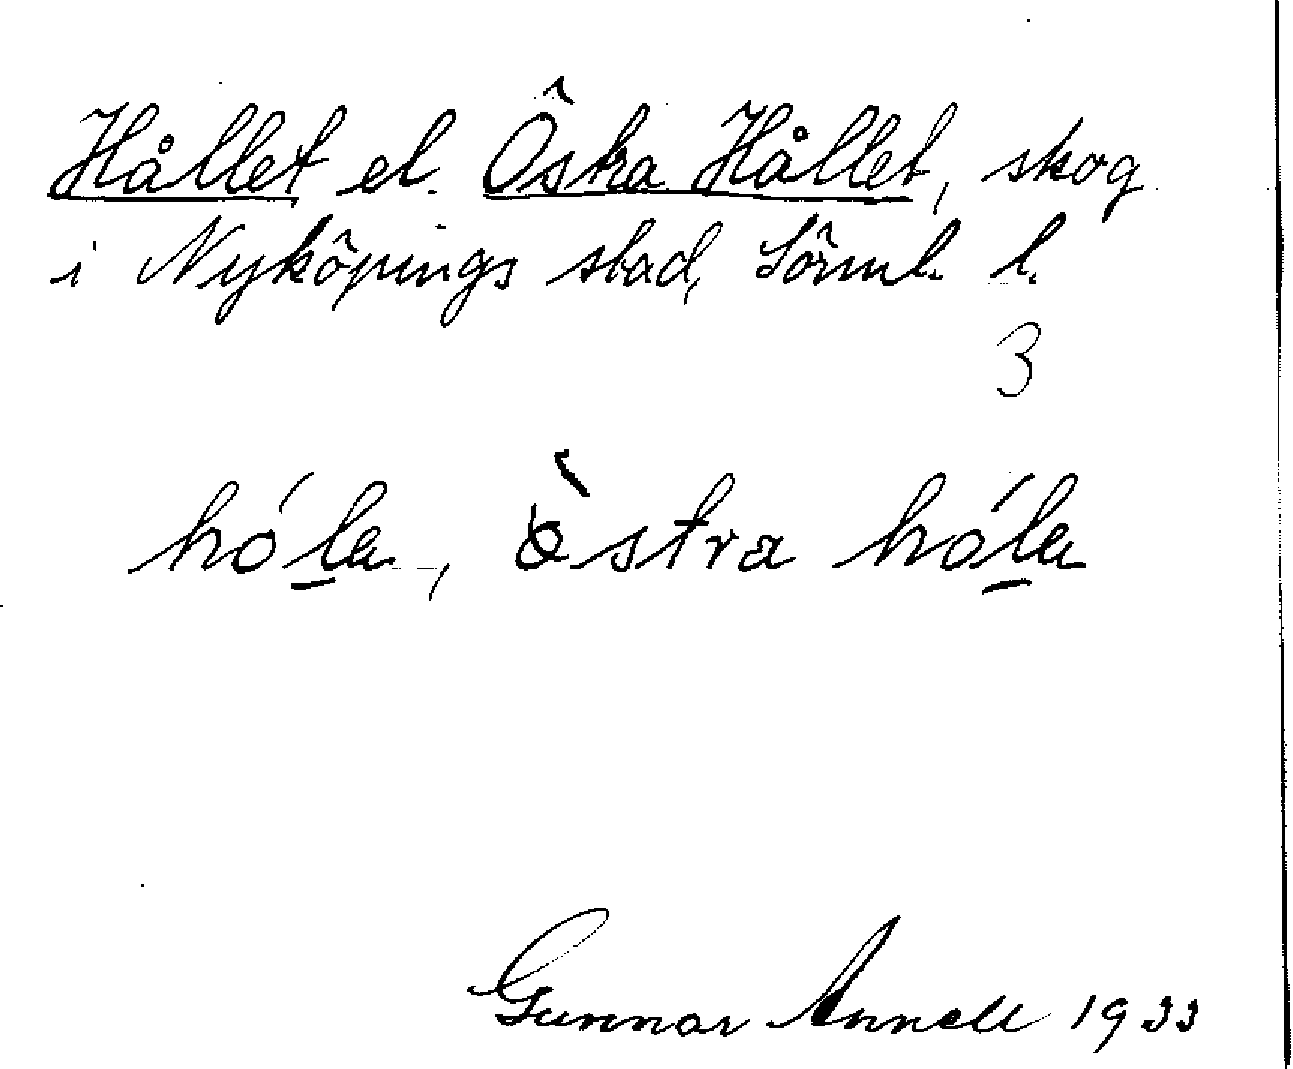 Hållet el. Öska Hållet, skog
i Nyköpings stad, Sörml. l.
3
hó̱la, òstra hó̱la
Gunnar Annell 1933